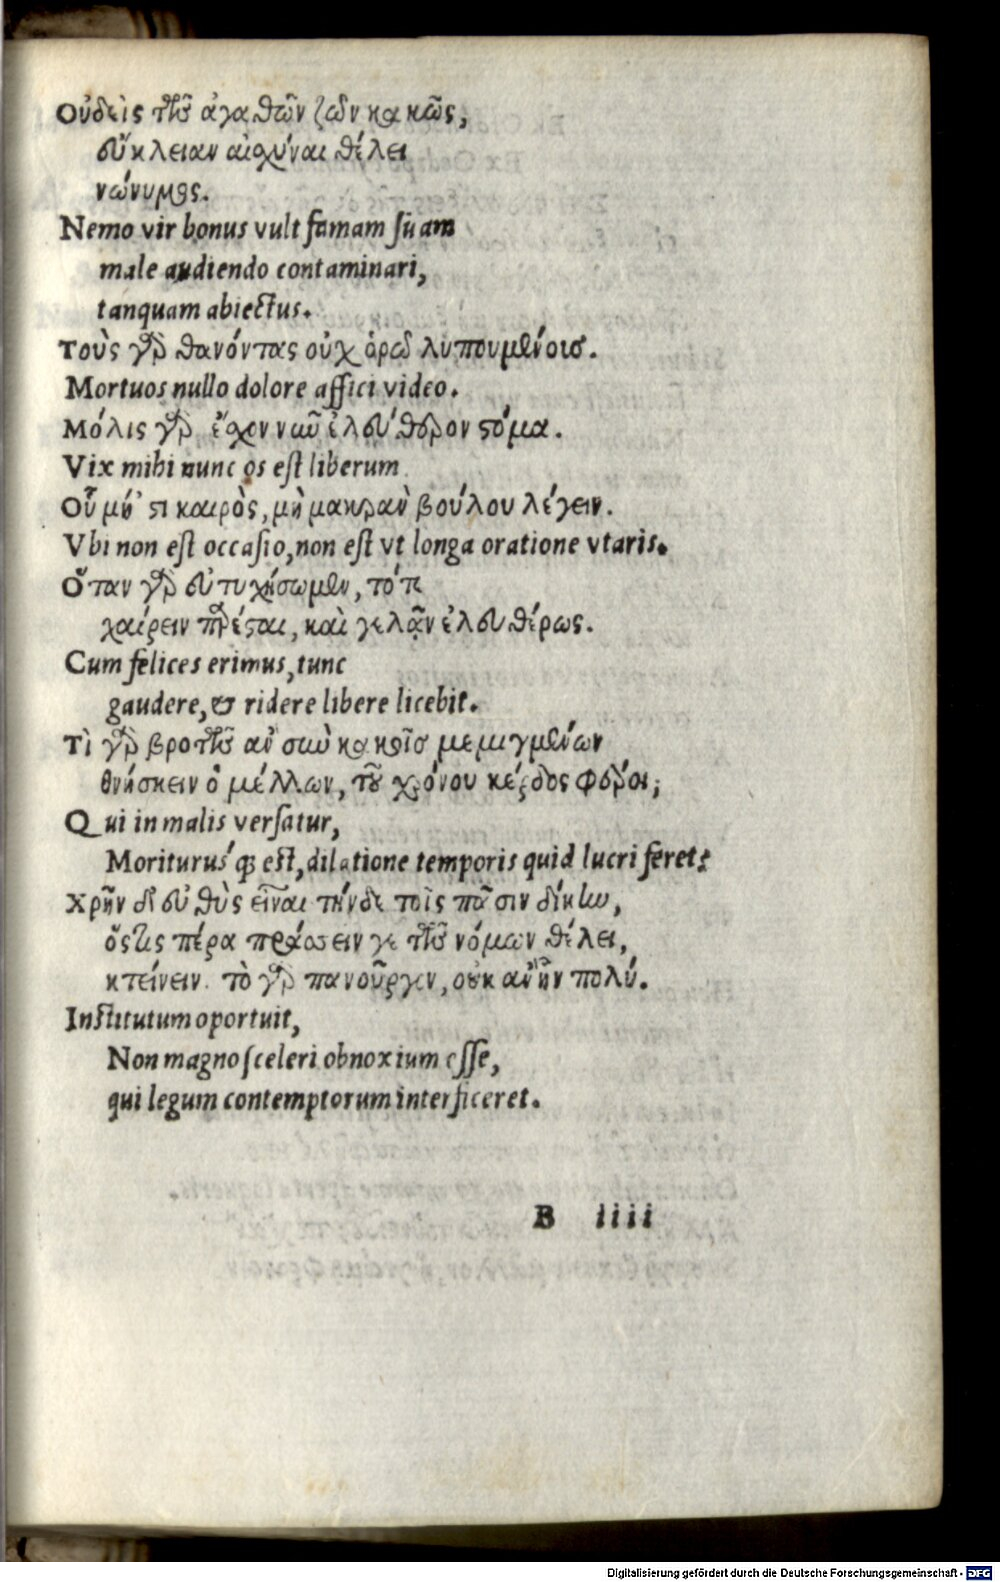 Οὐδεὶς τῶν ἀγαθῶν ζῶν κακῶς,
εὔκλειαν αἰσχύναι θέλει
νώνυμος.
Nemo vir bonus vult famam suam
male audiendo contaminari,
tanquam abiectus.
Τοὺς γὰρ θανόντας οὐχ ὁρῶ λυπουμένοισ.
Mortuos nullo dolore affici video.
Μόλις γὰρ ἔχον νῦν ἐλεύθερον στόμα.
Vix mihi nunc os est liberum
Οὗ μή ’στι καιρὸς, μὴ μακρὰν βούλου λέγειν.
Vbi non est occasio, non est vt longa oratione vtaris.
Ὅταν γὰρ εὐτυχήσωμεν, τότε
χαίρειν παρέσται, καὶ γελᾶν ἐλευθέρως.
Cum felices erimus, tunc
gaudere, & ridere libere licebit.
Τὶ γὰρ βροτῶν ἂν σὺν κακοῖσ μεμιγμένων
θνήσκειν ὁ μέλλων, τοῦ χρόνου κέρδος φέροι;
Qui in malis versatur,
Moriturus'q; est, dilatione temporis quid lucri feret?
Χρῆν δ’ εὐθὺς εἶναι τήνδε τοῖς πᾶσιν δίκην,
ὅστις πέρα πράσσειν γε τῶν νόμων θέλει,
κτείνειν. τὸ γὰρ πανοῦργεν, οὐκ ἂν ἦν πολύ.
Institutum oportuit,
Non magno sceleri obnoxium esse,
qui legum contemptorum interficeret.
B iiii
Digitalisierung gefördert durch die Deutsche Forschungsgemeinschaft - DFG